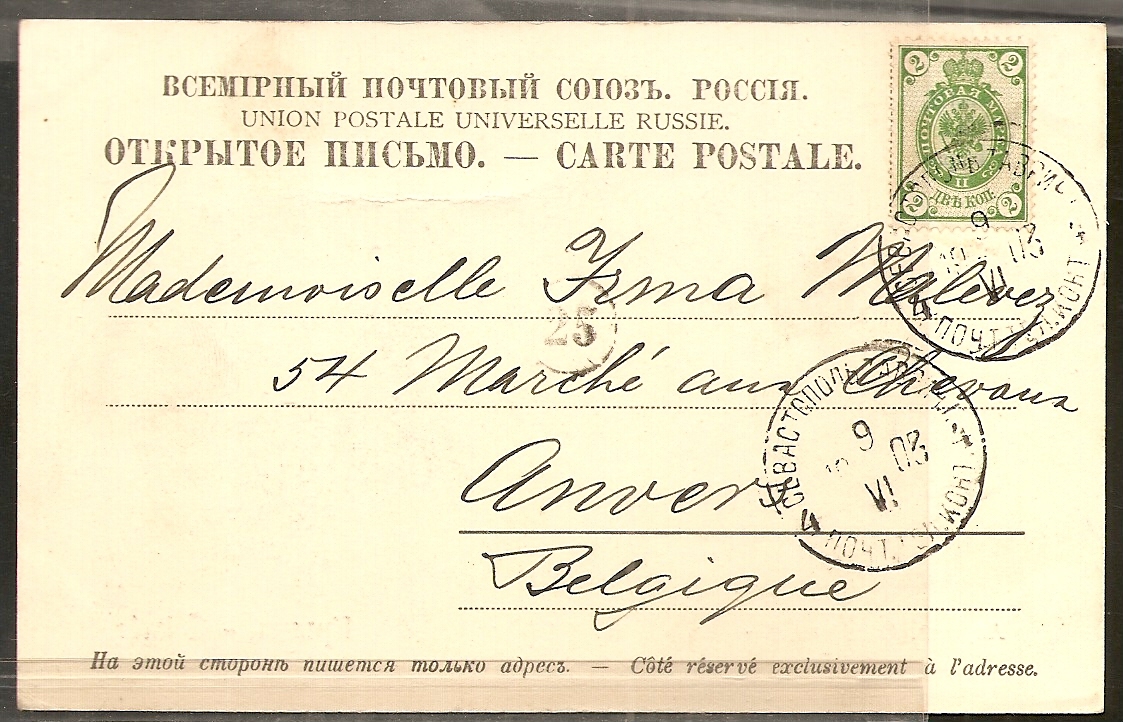 ВСЕМІРНЫЙ ПОЧТОВЫЙ СОЮЗЪ. РОССІЯ.
UNION POSTALE UNIVERSELLE RUSSIE.
ОТКРЫТОЕ ПИСЬМО. — CARTE POSTALE.
2 2
ПОЧТОВАЯ
II
ДВѢ КОП.
2 2
ТАВРИЧ
9
03
VI
4 ПОЧТ. ТЕЛ. КОНТ.
Mademoiselle Irma Malevez
25
54 Marché aux Chevaux
СЕВАСТОПОЛЬ
9
03
VI
4 ПОЧТ. ТЕЛ. КОНТ.
Anvers
Belgique
На этой сторонѣ пишется только адресъ. — Côté réservé exclusivement à l'adresse.